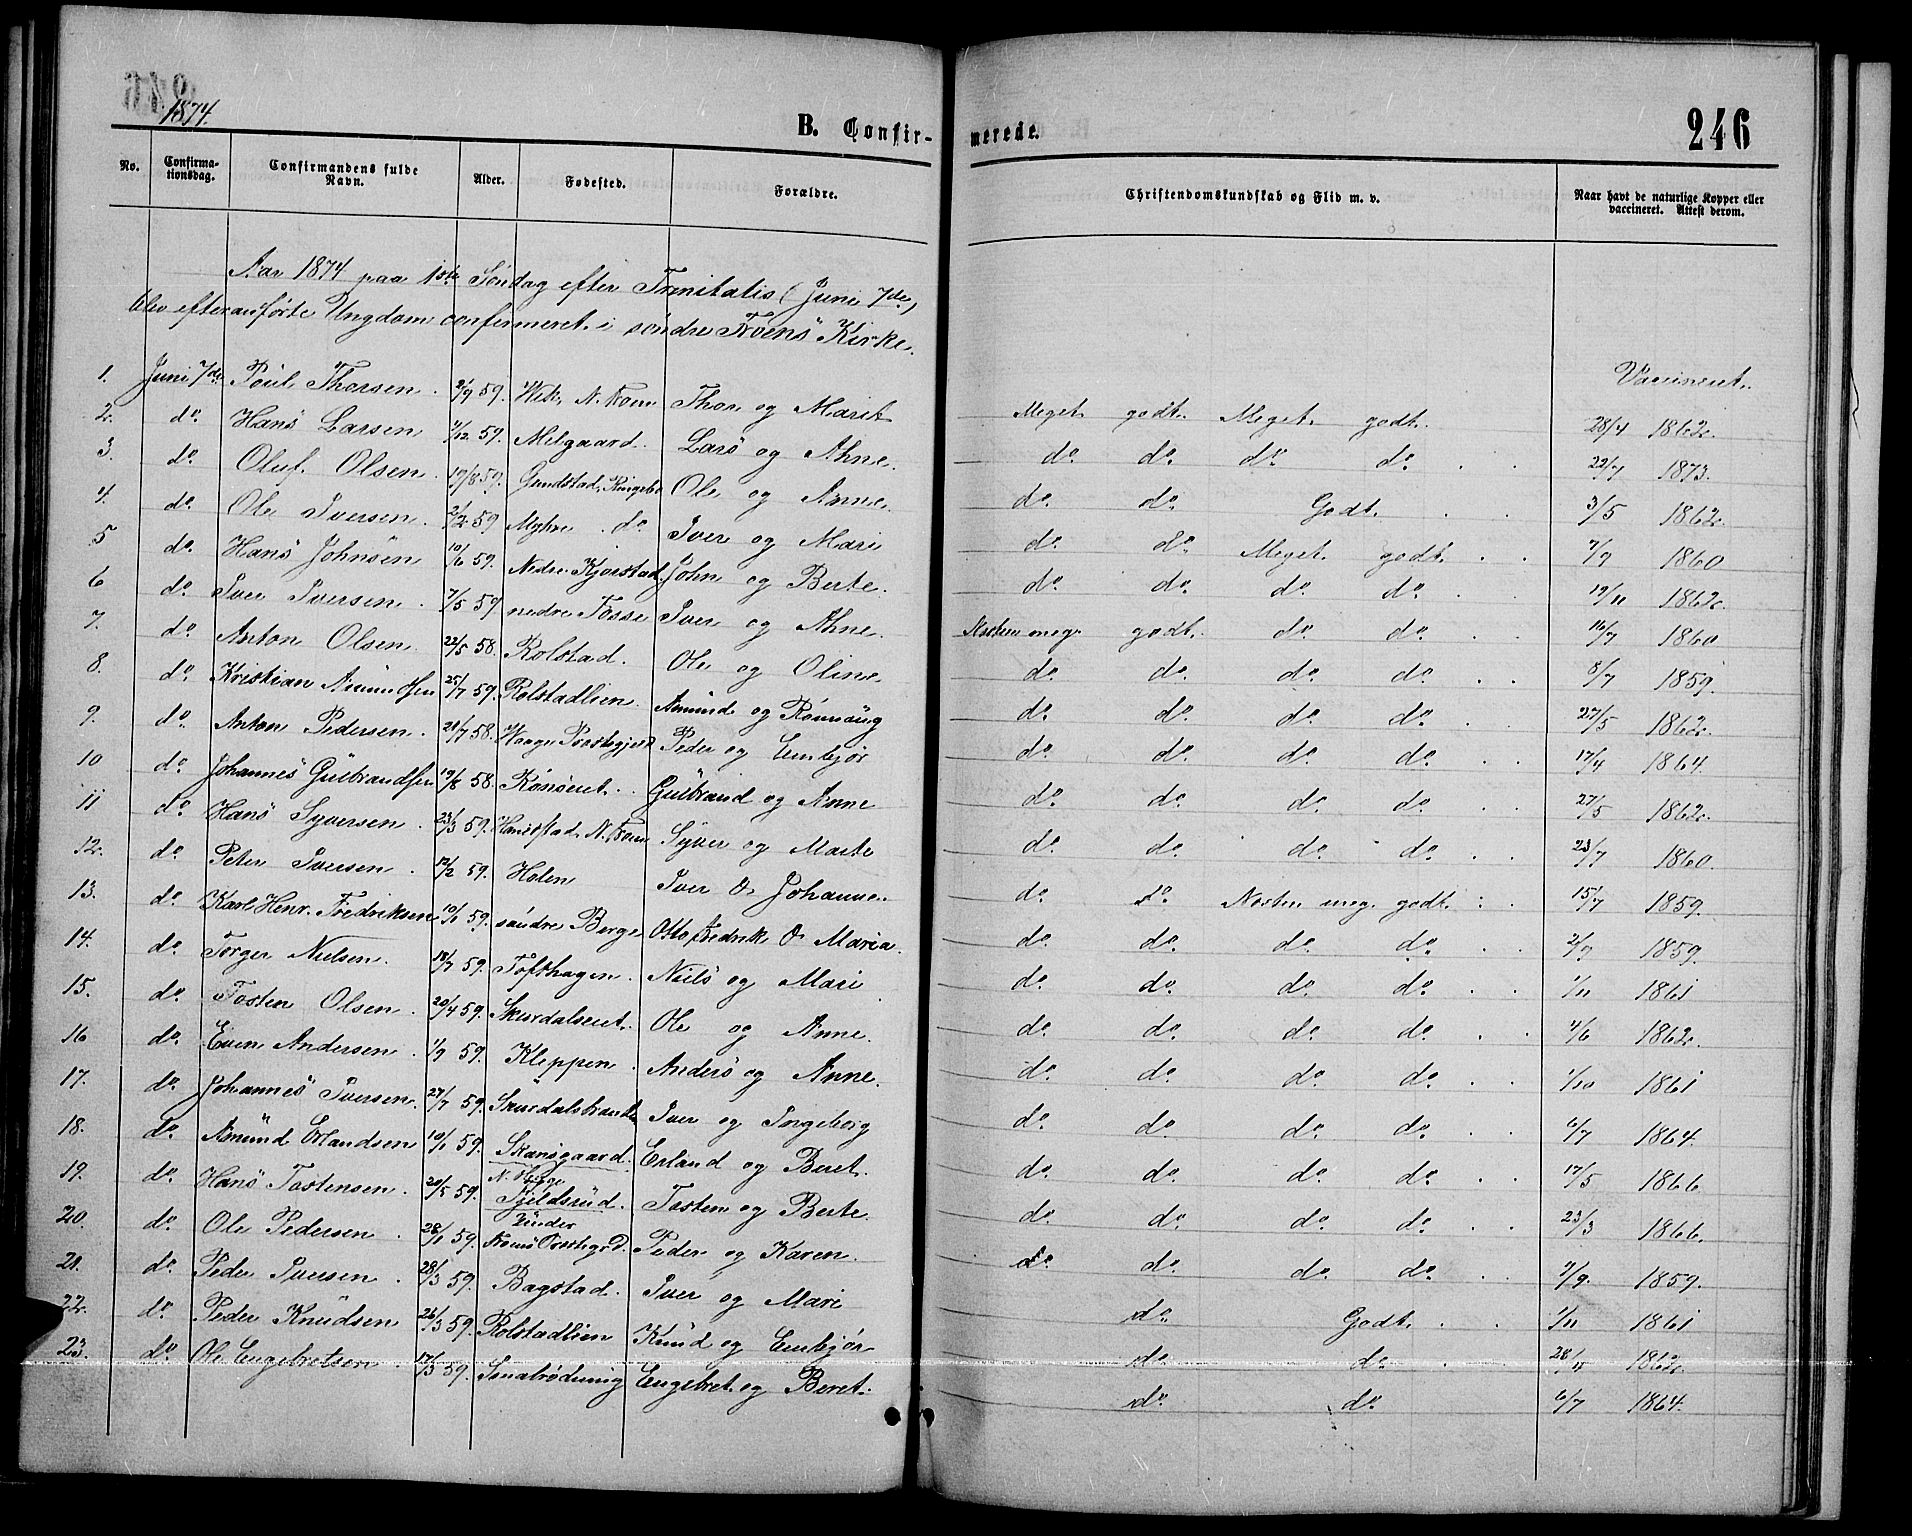 1874.
B. Confir-merede. 246
No. Confirma-tionsdag. Confirmandens fulde Navn. Alder. Fødested. Forældre. Christendomskundskab og Flid m. v. Naar havt de naturlige Kopper eller vaccineret. Attest derom.
Aar 1874 paa 1ste Søndag efter Trinitatis (Juni 7de)
blev efteranførte Ungdom confirmeret i søndre Froens Kirke.
Vaccineret.
1. Juni 7de Poul Thorsen 2/9 59. Wik, N. Froen Thor og Marit Meget godt. Meget godt. 28/4 1862.
2. do. Hans Larsen 4/12 59. Melgaard. Lars og Ahne. do. do. do. do. 22/7 1873.
3. do. Oluf Olsen 19/8 59. Gundstad, Ringebo Ole og Anne. do. do. Godt. 3/5 1862.
4. do. Ole Iversen 2/12 59 Myhre do. Iver og Mari do. do. Meget godt. 7/9 1860
5 do. Hans Johnsen 10/6 59. Nedre Kjorstad John og Berte. do. do. do. do. 19/11 1862.
6 do. Iver Iversen 7/5 59 nedre Fosse Iver og Ahne. Næsten meg. godt. do. do. 16/7 1860
7. do. Anton Olsen 22/5 58. Rolstad. Ole og Oline do. do. do. do. 8/7 1859.
8. do. Kristian Amundsen 25/7 59. Rolstadlien Amund og Rønnaug do. do. do. do. 27/5 1862.
9. do. Anton Pedersen 21/7 58. Waage Præstegjeld Peder og Embjør do. do. do. do. 17/4 1864.
10 do. Johannes Gulbrandsen 19/8 58. Gulbrand og Anne do. do. do. do. 27/5 1862.
11 do. Hans Syversen 23/3 59. N. Froen Syver og Marte do. do. do. do. 23/7 1860.
12. do. Peter Iversen 12/2 59. Holen Iver & Johanne. do. do. Nesten meg. godt. 15/7 1859.
13. do. Karl Henr. Fredriksen 10/1 59. søndre Berge Otto Fredrik & Maria. do. do. do. do. 2/9 1859.
14. do. Torger Nielsen. 18/7 59. Tofthagen Niels og Mari do. do. do. do. 1/11 1861
15. do. Tosten Olsen 20/4 59. Skurdalseiet. Ole og Anne. do. do. do. do. 4/6 1862.
16 do. Even Andersen 1/9 59. Kleppen Anders og Anne. do. do. do. do. 1/10 1861
17. do. Johannes Iversen. 27/7 59. Iver og Ingeborg do. do. do. do. 6/7 1864.
18. do. Amund Erlandsen 10/1 59. Skansgaard. Erland og Beret. do. do. do. do. 17/5 1866.
19. do. Hans Tostensen 20/5 59. N. Fjeldsrud. Tosten og Berte. do. do. do. do. 23/3 1866.
20. do. Ole Pedersen 28/1 59. Peder og Karen. do. do. do. do. 7/9. 1859.
21. do. Peder Iversen 28/3 59. Bagstad. Iver og Mari do. Godt. 1/11 1861
22. do. Peder Knudsen 26/3 59. Rolstadlien Knud og Embjør do. do. 28/11 1862.
23. do. Ole Engebretsen 17/3 59. Engebret og Beret. do. do. 6/7 1864.